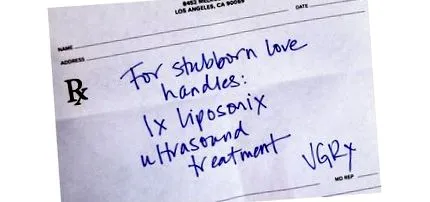 LOS ANGELES, CA 90069
DATE
NAME
ADDRESS
Rx
For stubborn love
handles:
1x liposonix
ultrasound
treatment
VGRx
MD REP